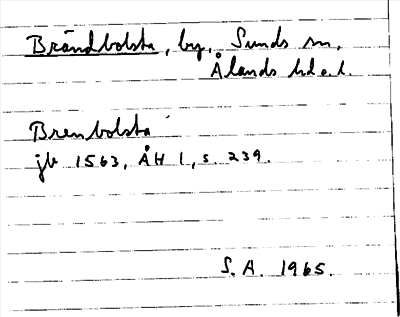 Brändbolsta, by, Sunds sn,
Ålands hd o. l.
Brenbolsta
jb 1563, ÅH 1, s. 239.
S. A. 1965.